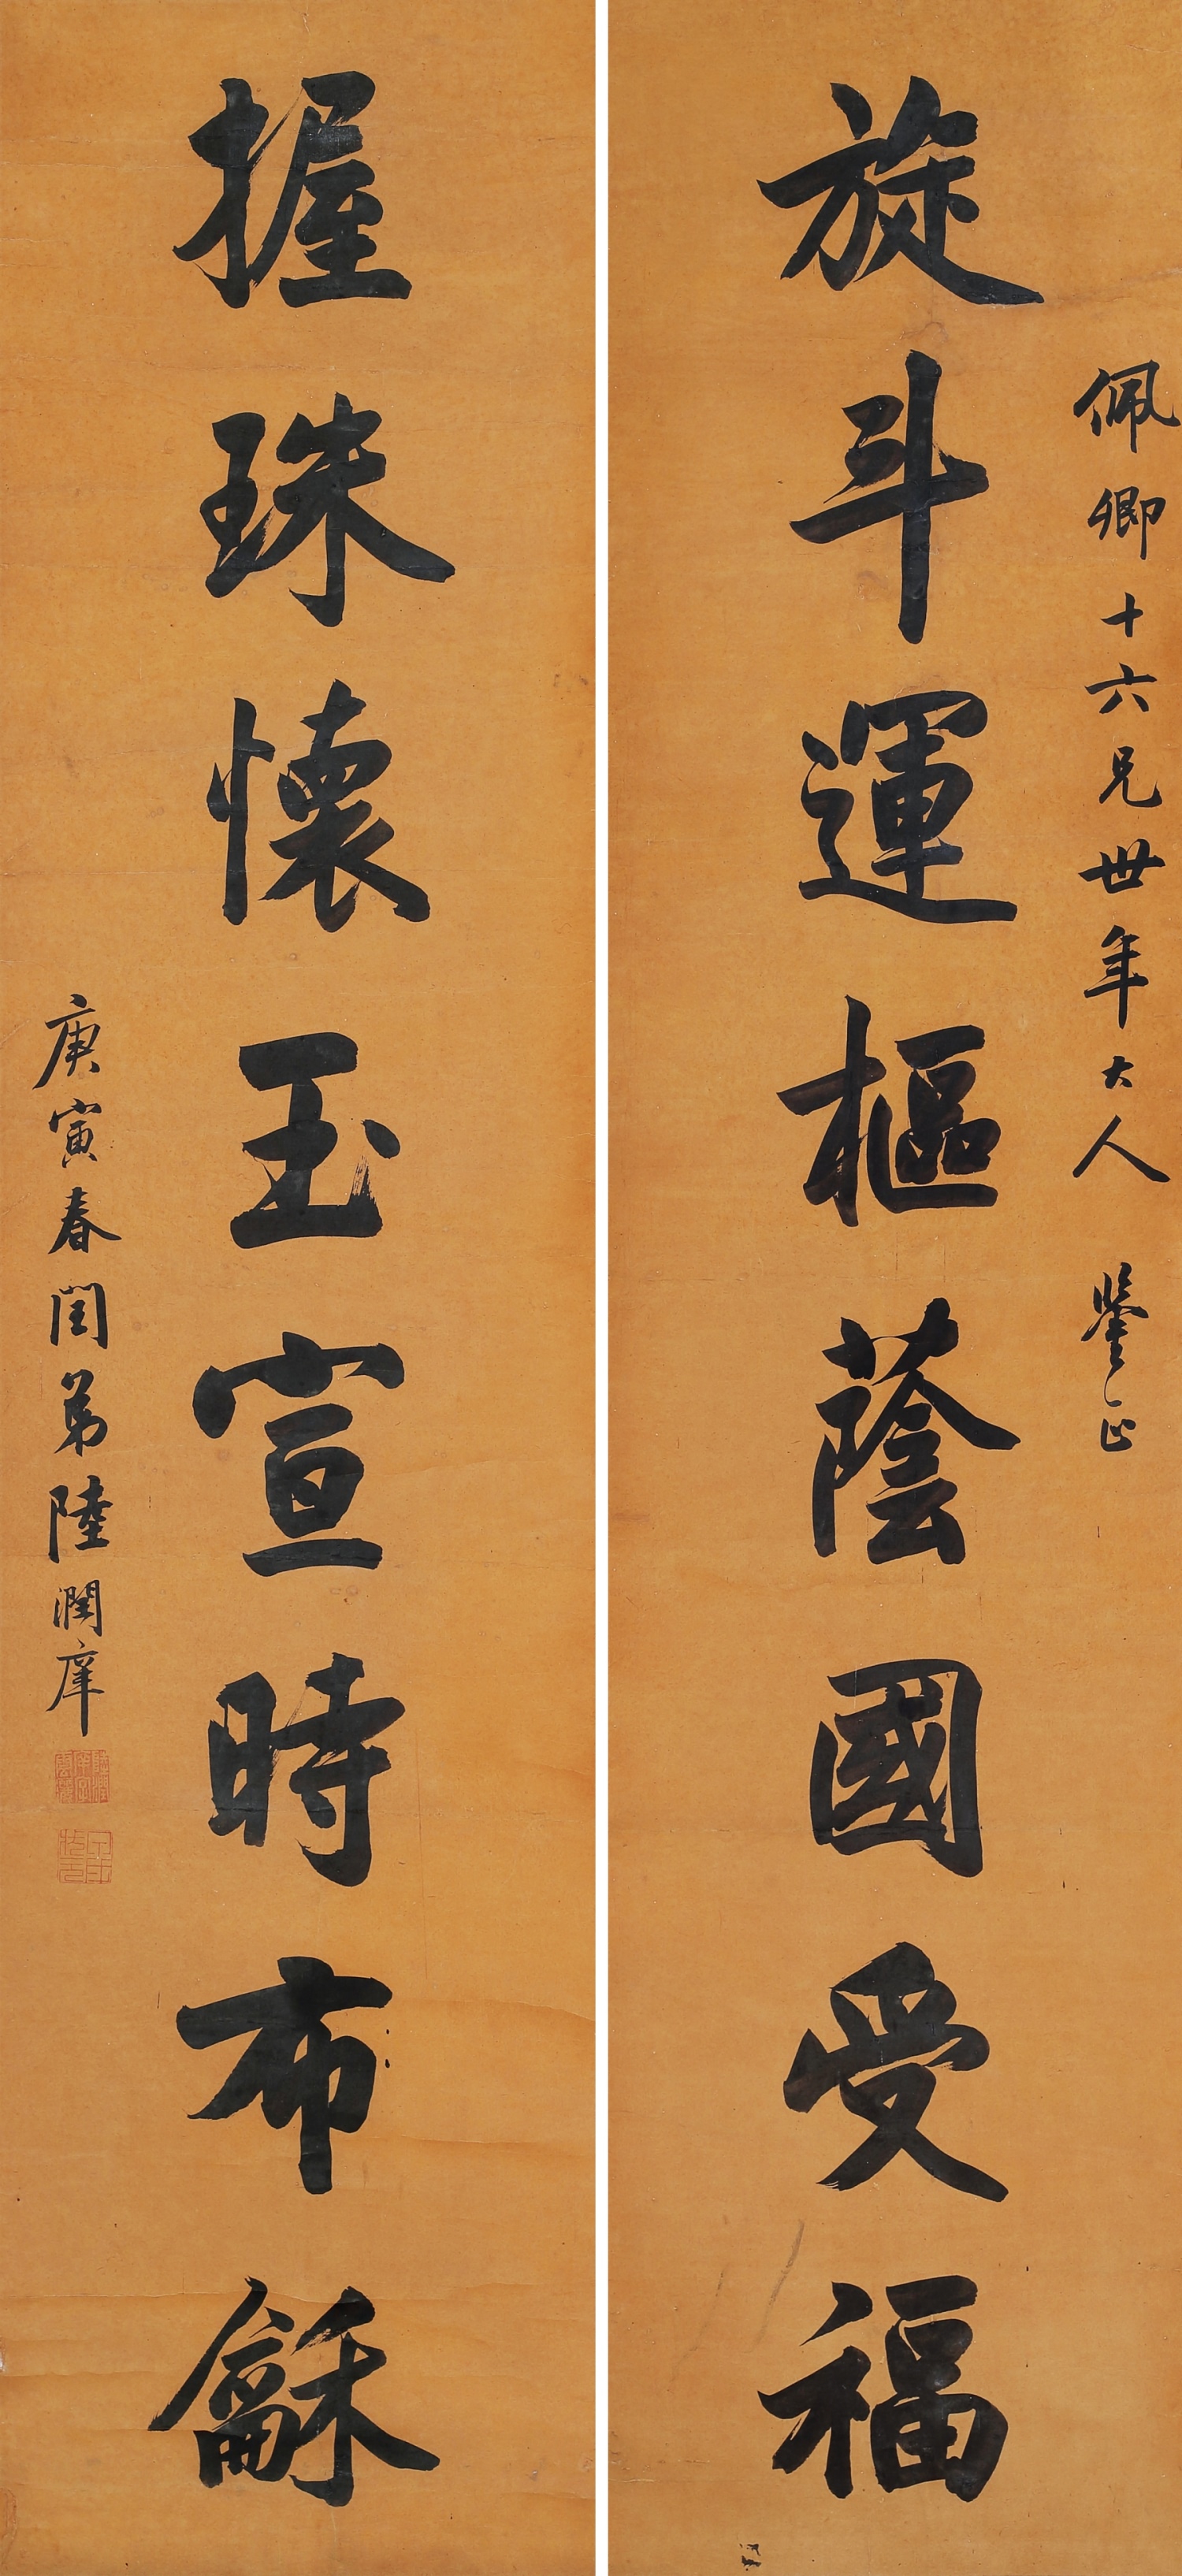 佩卿十六兄世年大人鑒正
旋斗運樞蔭國受福
握珠懷玉宣時布龢
庚寅春閏弟陸潤庠